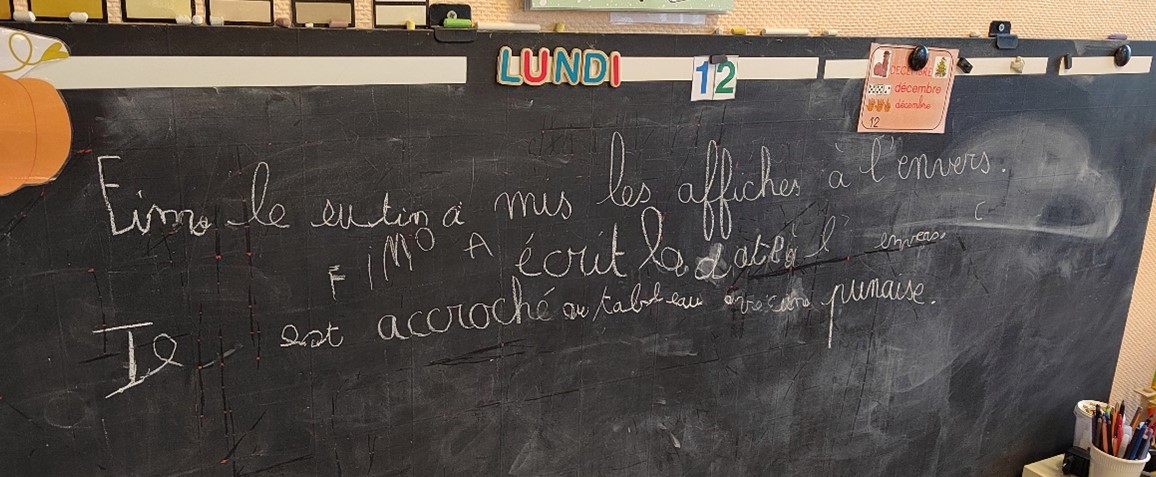 LUNDI 12
DECEMBRE
décembre
décembre
12
Fimo le lutin a mis les affiches à l'envers.
FiMO A écrit la date à l'envers.
Il est accroché au tableau avec une punaise.